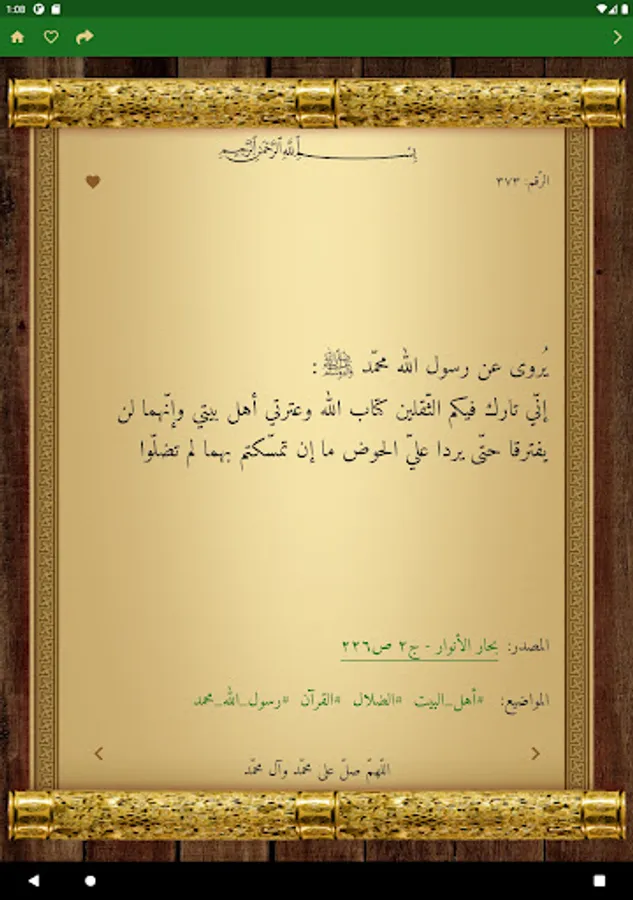 1:08
بِسْمِ اللَّهِ الرَّحْمَٰنِ الرَّحِيمِ
الرّقم: ٣٧٣
يُروى عن رسول الله محمّد ﷺ :
إنّي تارك فيكم الثّقلين كتاب الله وعترتي أهل بيتي وإنّهما لن
يفترقا حتّى يردا عليّ الحوض ما إن تمسّكتم بهما لم تضلّوا
المصدر: بحار الأنوار - ج٢ ص٢٢٦
المواضيع: #أهل_البيت #الضلال #القرآن #رسول_الله_محمد
اللّهمّ صلّ على محمّد وآل محمّد